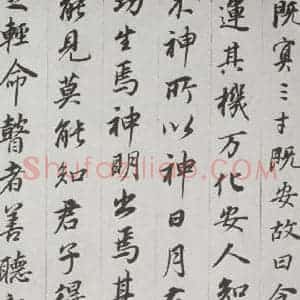 既宜三才既安故曰食
運其機万化安人知
不神所以神日月有
功生焉神明出焉其
能見莫能知君子得
之輕命瞽者善聽